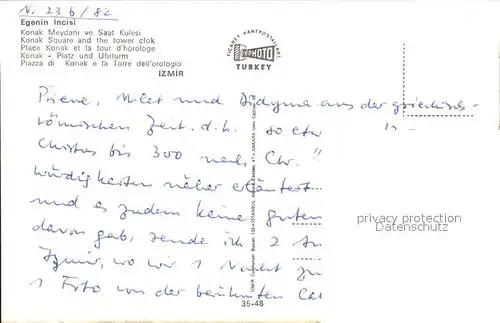 N. 236/82
Egenin Incisi
Konak Meydanı ve Saat Kulesi
Konak Square and the tower clok
Place Konak et la tour d'horologe
Konak - Platz und Uhrturm
Piazza di Konak e la Torre dell'orologio
IZMIR
TICARET KARTPOSTALLARI
KESKIN PHOTO
TURKEY
Priene, Milet und Didyma aus der griechisch-
römischen Zeit. d.h. so etw
Christus bis 300 nach Chr.
würdigkeiten näher erläutert
und es zudem keine guten
davon gab, sende ich 2 An
Izmir, wo wir 1 Nacht zu
1 Foto von der berühmten
privacy protection
Datenschutz
35-48